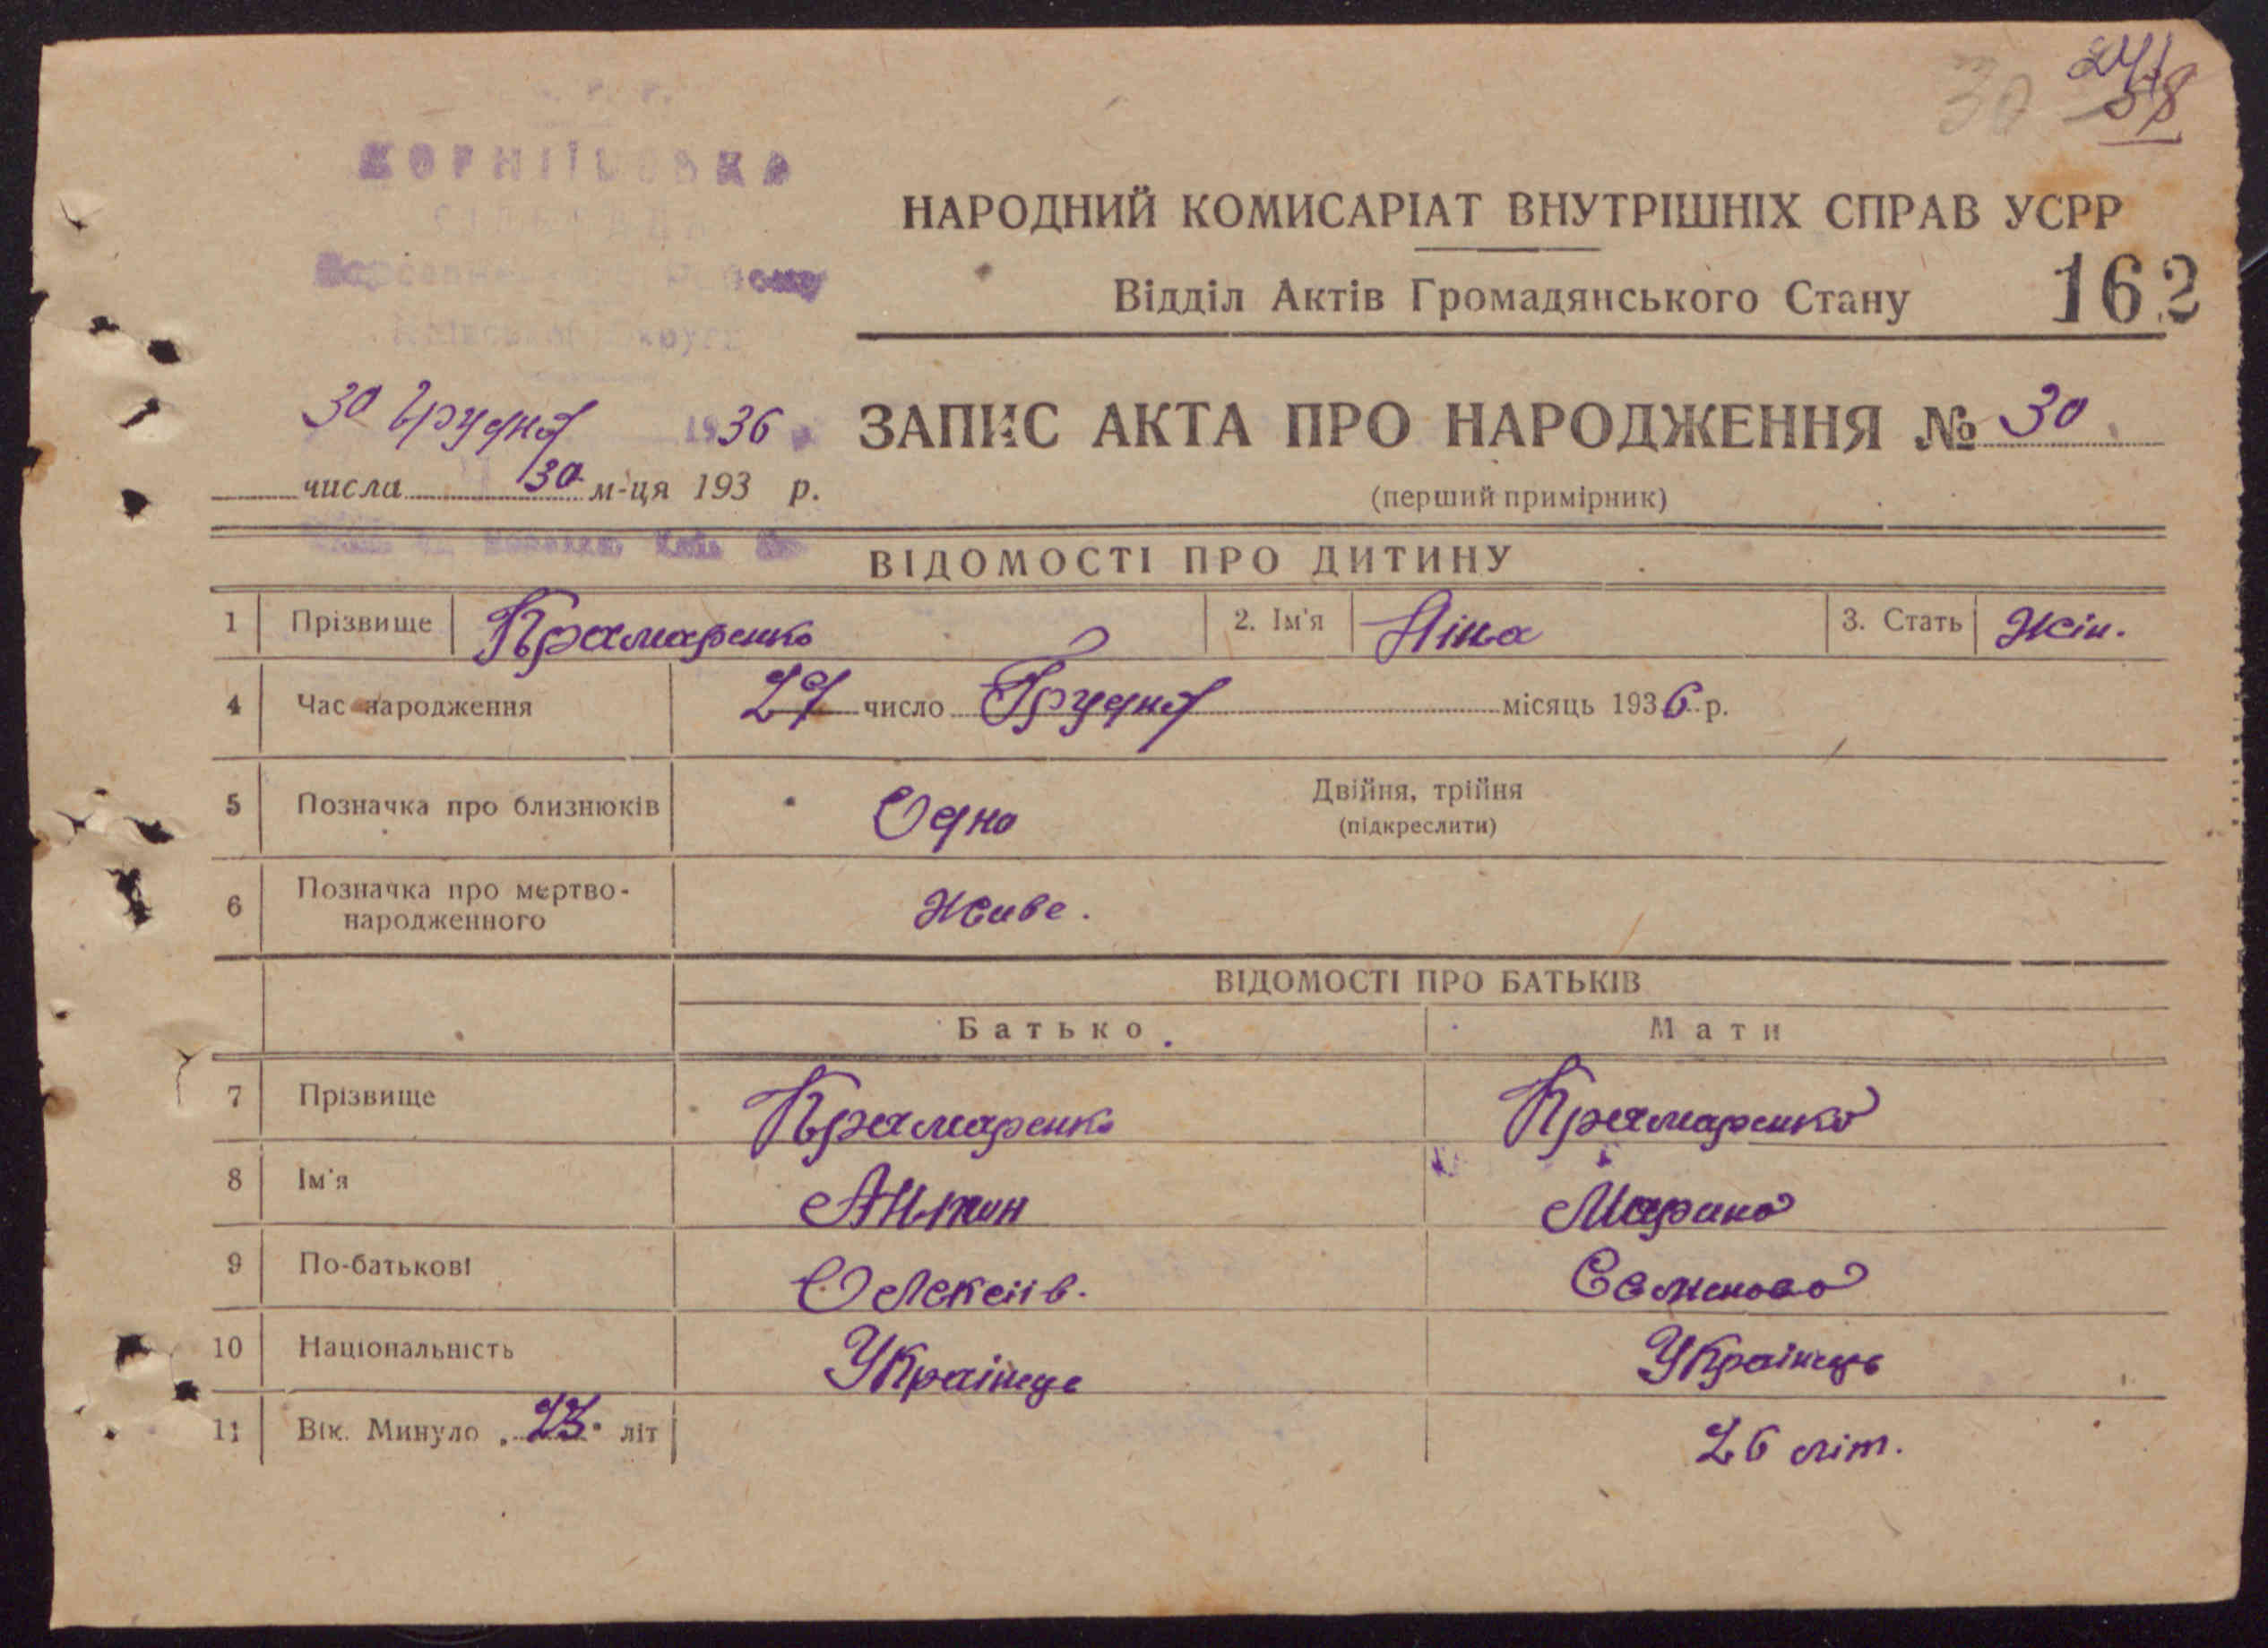 241
58
30
КОРНІЇВСЬКА
НАРОДНИЙ КОМИСАРІАТ ВНУТРІШНІХ СПРАВ УСРР
Відділ Актів Громадянського Стану
162
30 Грудня 1936
ЗАПИС АКТА ПРО НАРОДЖЕННЯ № 30
числа 30 м-ця 193 р.
(перший примірник)
ВІДОМОСТІ ПРО ДИТИНУ
1 Прізвище Крамаренко 2. Ім'я Ніна 3. Стать Жін.
4 Час народження 27 число Грудня місяць 1936 р.
5 Позначка про близнюків Одно Двійня, трійня
(підкреслити)
6 Позначка про мертво-
народженного Живе.
ВІДОМОСТІ ПРО БАТЬКІВ
Батько Мати
7 Прізвище Крамаренко Крамаренко
8 Ім'я Антон Марина
9 По-батькові Олексіїв. Семенова
10 Національність Українце Українць
11 Вік. Минуло 23 літ 26 літ.